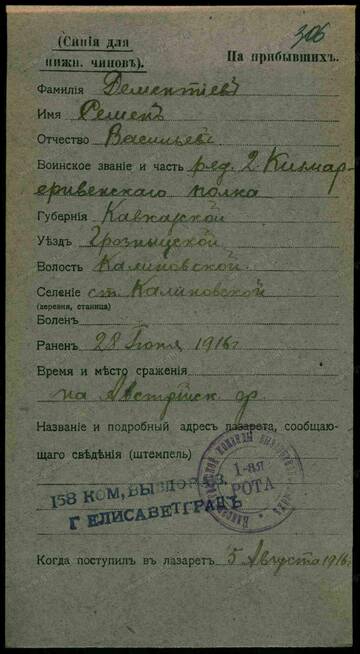 306
(Синія для
нижн. чиновъ).
На прибывшихъ.
Фамилія Дементіевъ
Имя Семенъ
Отчество Васильевъ
Воинское званіе и часть ряд. 2 Кизляр-
гребенскаго полка
Губернія Кавказской
Уѣздъ Грозныцской
Волость Калиновской
Селеніе ст. Калиновской
(деревня, станица)
Боленъ
Раненъ 28 Іюня 1916 г
Время и мѣсто сраженія
на Австрійск фр.
Названіе и подробный адресъ лазарета, сообщаю-
щаго свѣдѣнія (штемпель)
1-ая
РОТА
158 КОМ, ВЫЗДОРАВ.
Г ЕЛИСАВЕТГРАДЪ
Когда поступилъ въ лазаретъ 5 Августа 1916 г